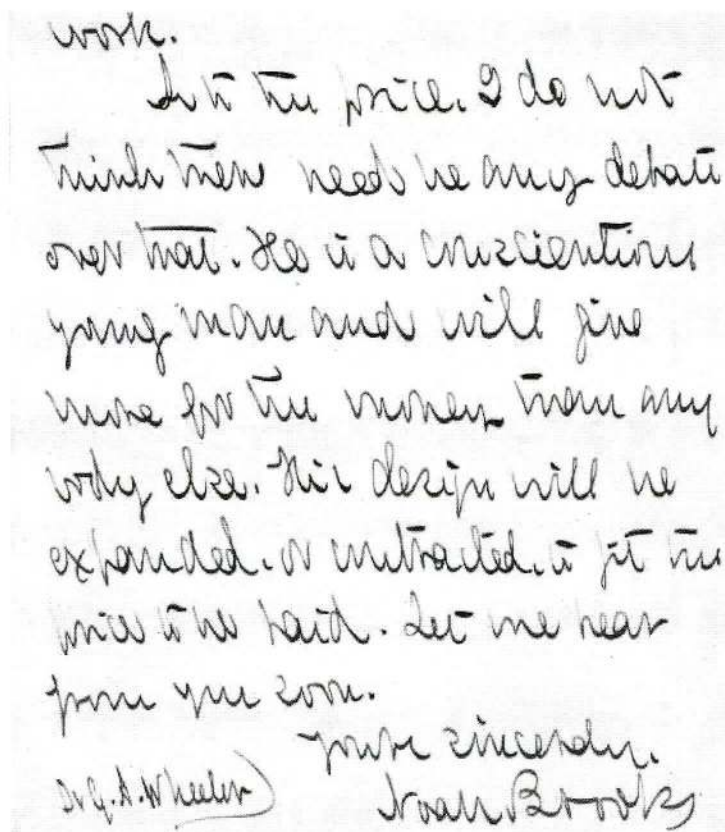 work.
As to the price. I do not
think there need be any debate
over that. He is a conscientious
young man and will give
more for the money than any
body else. His design will be
expanded, or contracted, to fit the
price to be paid. Let me hear
from you soon.
Yours sincerely.
Dr G. A. Wheeler) Noah Brooks